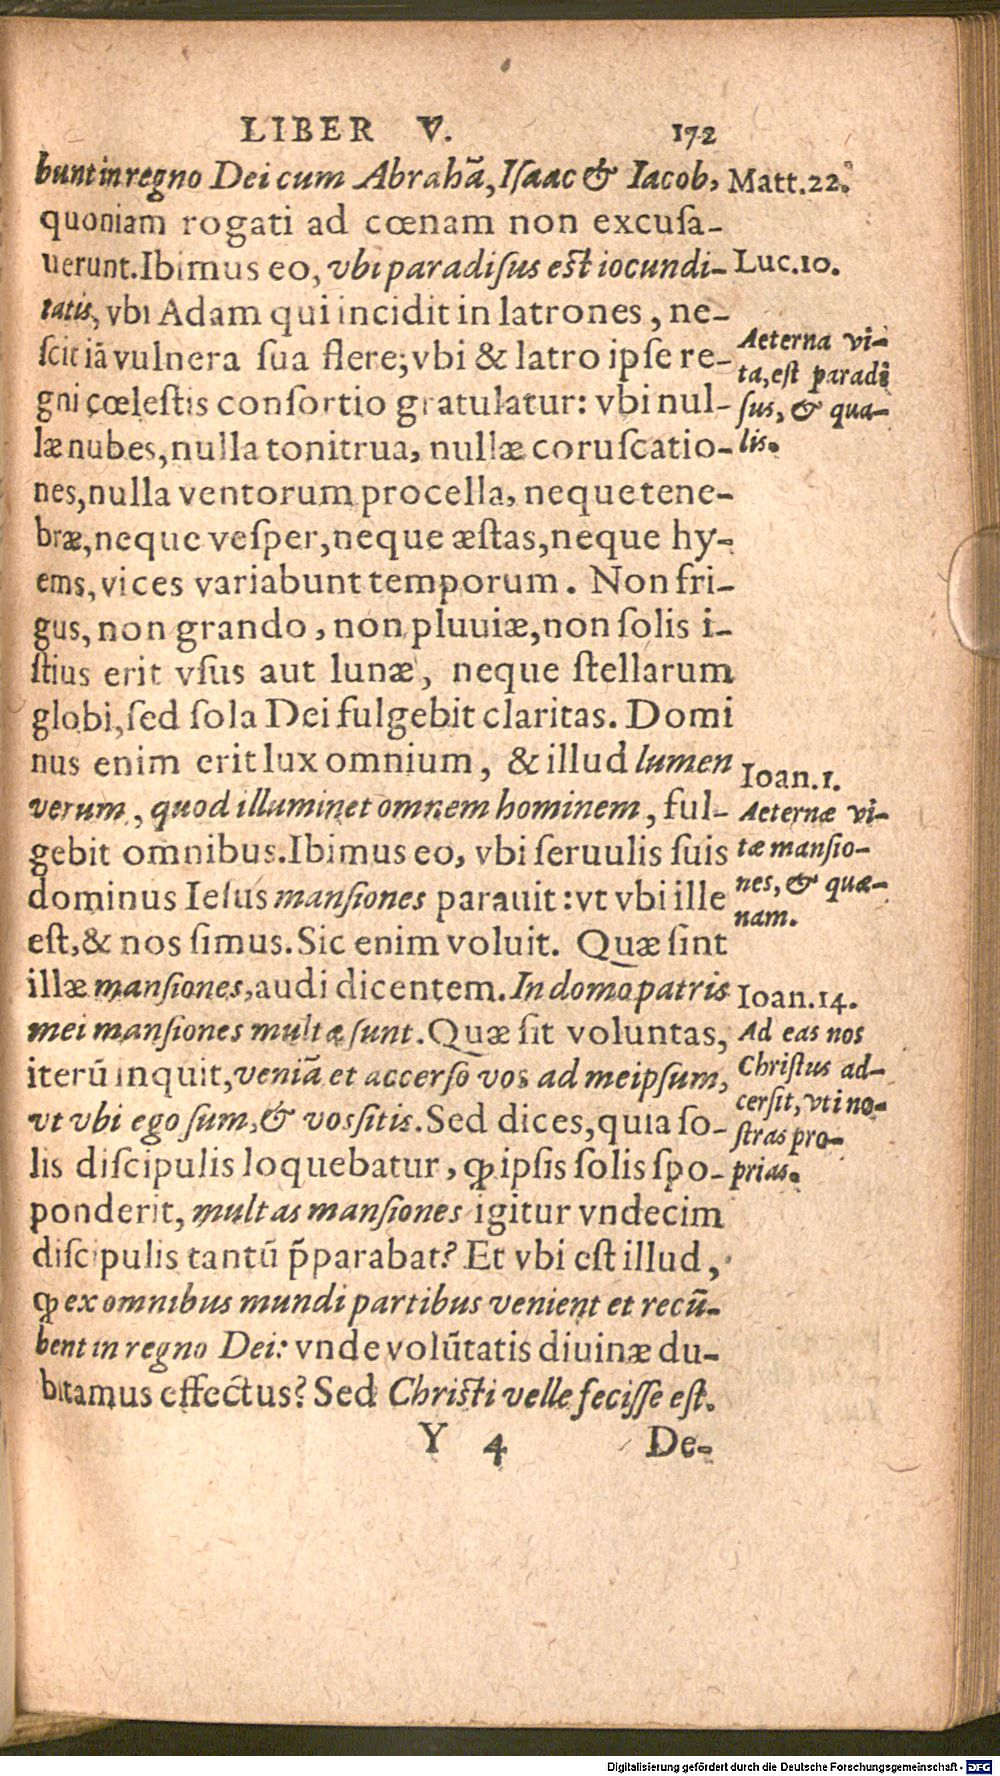 LIBER V. 172
bunt in regno Dei cum Abrahā, Iſaac & Iacob,
quoniam rogati ad cœnam non excuſa-
uerunt. Ibimus eo, vbi paradiſus eſt iocundi-
tatis, vbi Adam qui incidit in latrones, ne-
ſcit iā vulnera ſua flere; vbi & latro ipſe re-
gni cœleſtis conſortio gratulatur: vbi nul-
læ nubes, nulla tonitrua, nullæ coruſcatio-
nes, nulla ventorum procella, neque tene-
bræ, neque veſper, neque æſtas, neque hy-
ems, vices variabunt temporum. Non fri-
gus, non grando, non pluuiæ, non ſolis i-
ſtius erit vſus aut lunæ, neque ſtellarum
globi, ſed ſola Dei fulgebit claritas. Domi
nus enim erit lux omnium, & illud lumen
verum, quod illuminet omnem hominem, ful-
gebit omnibus. Ibimus eo, vbi ſeruulis ſuis
dominus Ieſus manſiones parauit: vt vbi ille
eſt, & nos ſimus. Sic enim voluit. Quæ ſint
illæ manſiones, audi dicentem. In domo patris
mei manſiones multæ ſunt. Quæ ſit voluntas,
iterū inquit, veniā et accerſo vos ad meipſum,
vt vbi ego ſum, & vos ſitis. Sed dices, quia ſo-
lis diſcipulis loquebatur, ꝙ ipſis ſolis ſpo-
ponderit, multas manſiones igitur vndecim
diſcipulis tantū p̄parabat? Et vbi eſt illud,
ꝙ ex omnibus mundi partibus venient et recū-
bent in regno Dei: vnde volūtatis diuinæ du-
bitamus effectus? Sed Chriſti velle feciſſe eſt.
Y 4 De-
Matt. 22.
Luc. 10.
Aeterna vi-
ta, eſt paradi
ſus, & qua-
lis.
Ioan. 1.
Aeternæ vi-
tæ manſio-
nes, & quæ-
nam.
Ioan. 14.
Ad eas nos
Chriſtus ad-
cerſit, vti no-
ſtras pro-
prias.
Digitalisierung gefördert durch die Deutsche Forschungsgemeinschaft - DFG